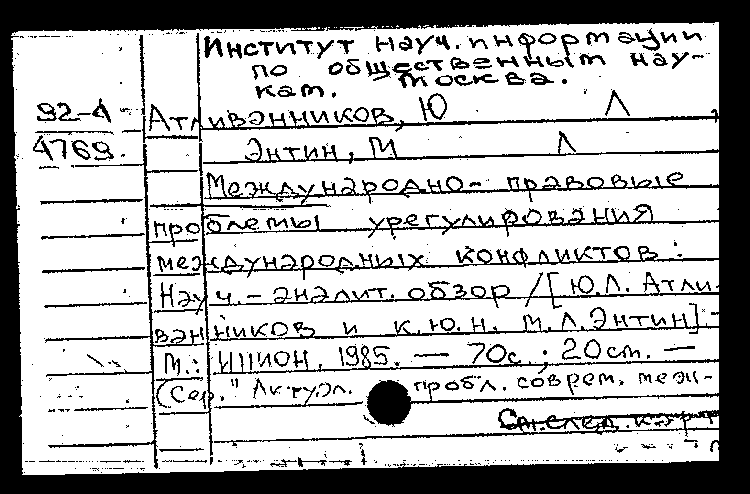 Институт науч. информации
по общественным нау-
кам. Москва.
92-4 Атливанников, Ю Л
4769. Энтин, М Л
Международно-правовые
проблемы урегулирования
международных конфликтов:
Науч.-аналит. обзор /[Ю.Л. Атли-
ванников и к.ю.н. М.Л. Энтин].-
М.: ИНИОН, 1985. — 70с.; 20см. —
(Сер. "Актуал. пробл. соврем. меж-
См. след. карт